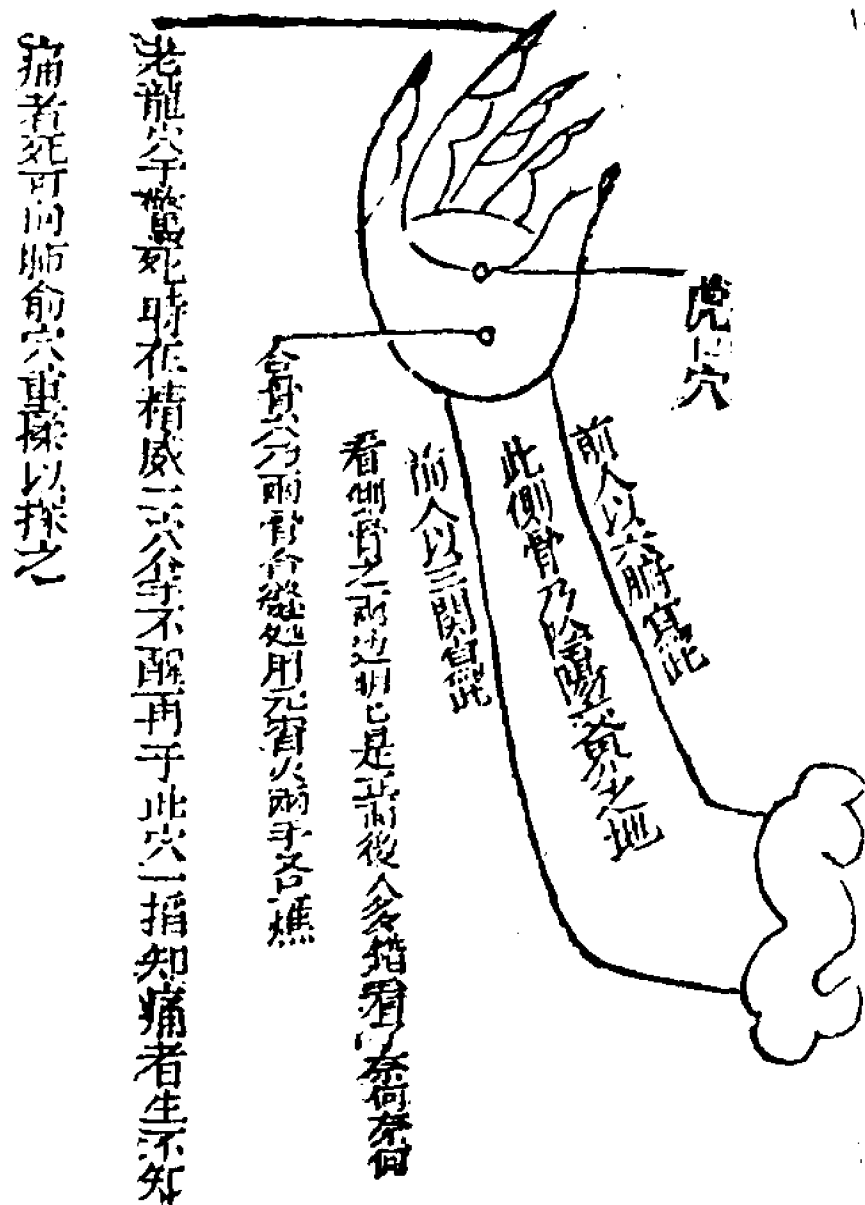 虎口穴
前人以六腑寫此
此側骨乃陰陽發見之地
前人以三關寫此
看側骨之兩邊明已是正面後人多錯看了奈何奈何
合骨穴乃兩骨合縫処用元宵火兩手各燋
老龍穴于驚死時在精威二穴拿不醒再于此穴一掐知痛者生不知
痛者死可向肺俞穴重揉以探之